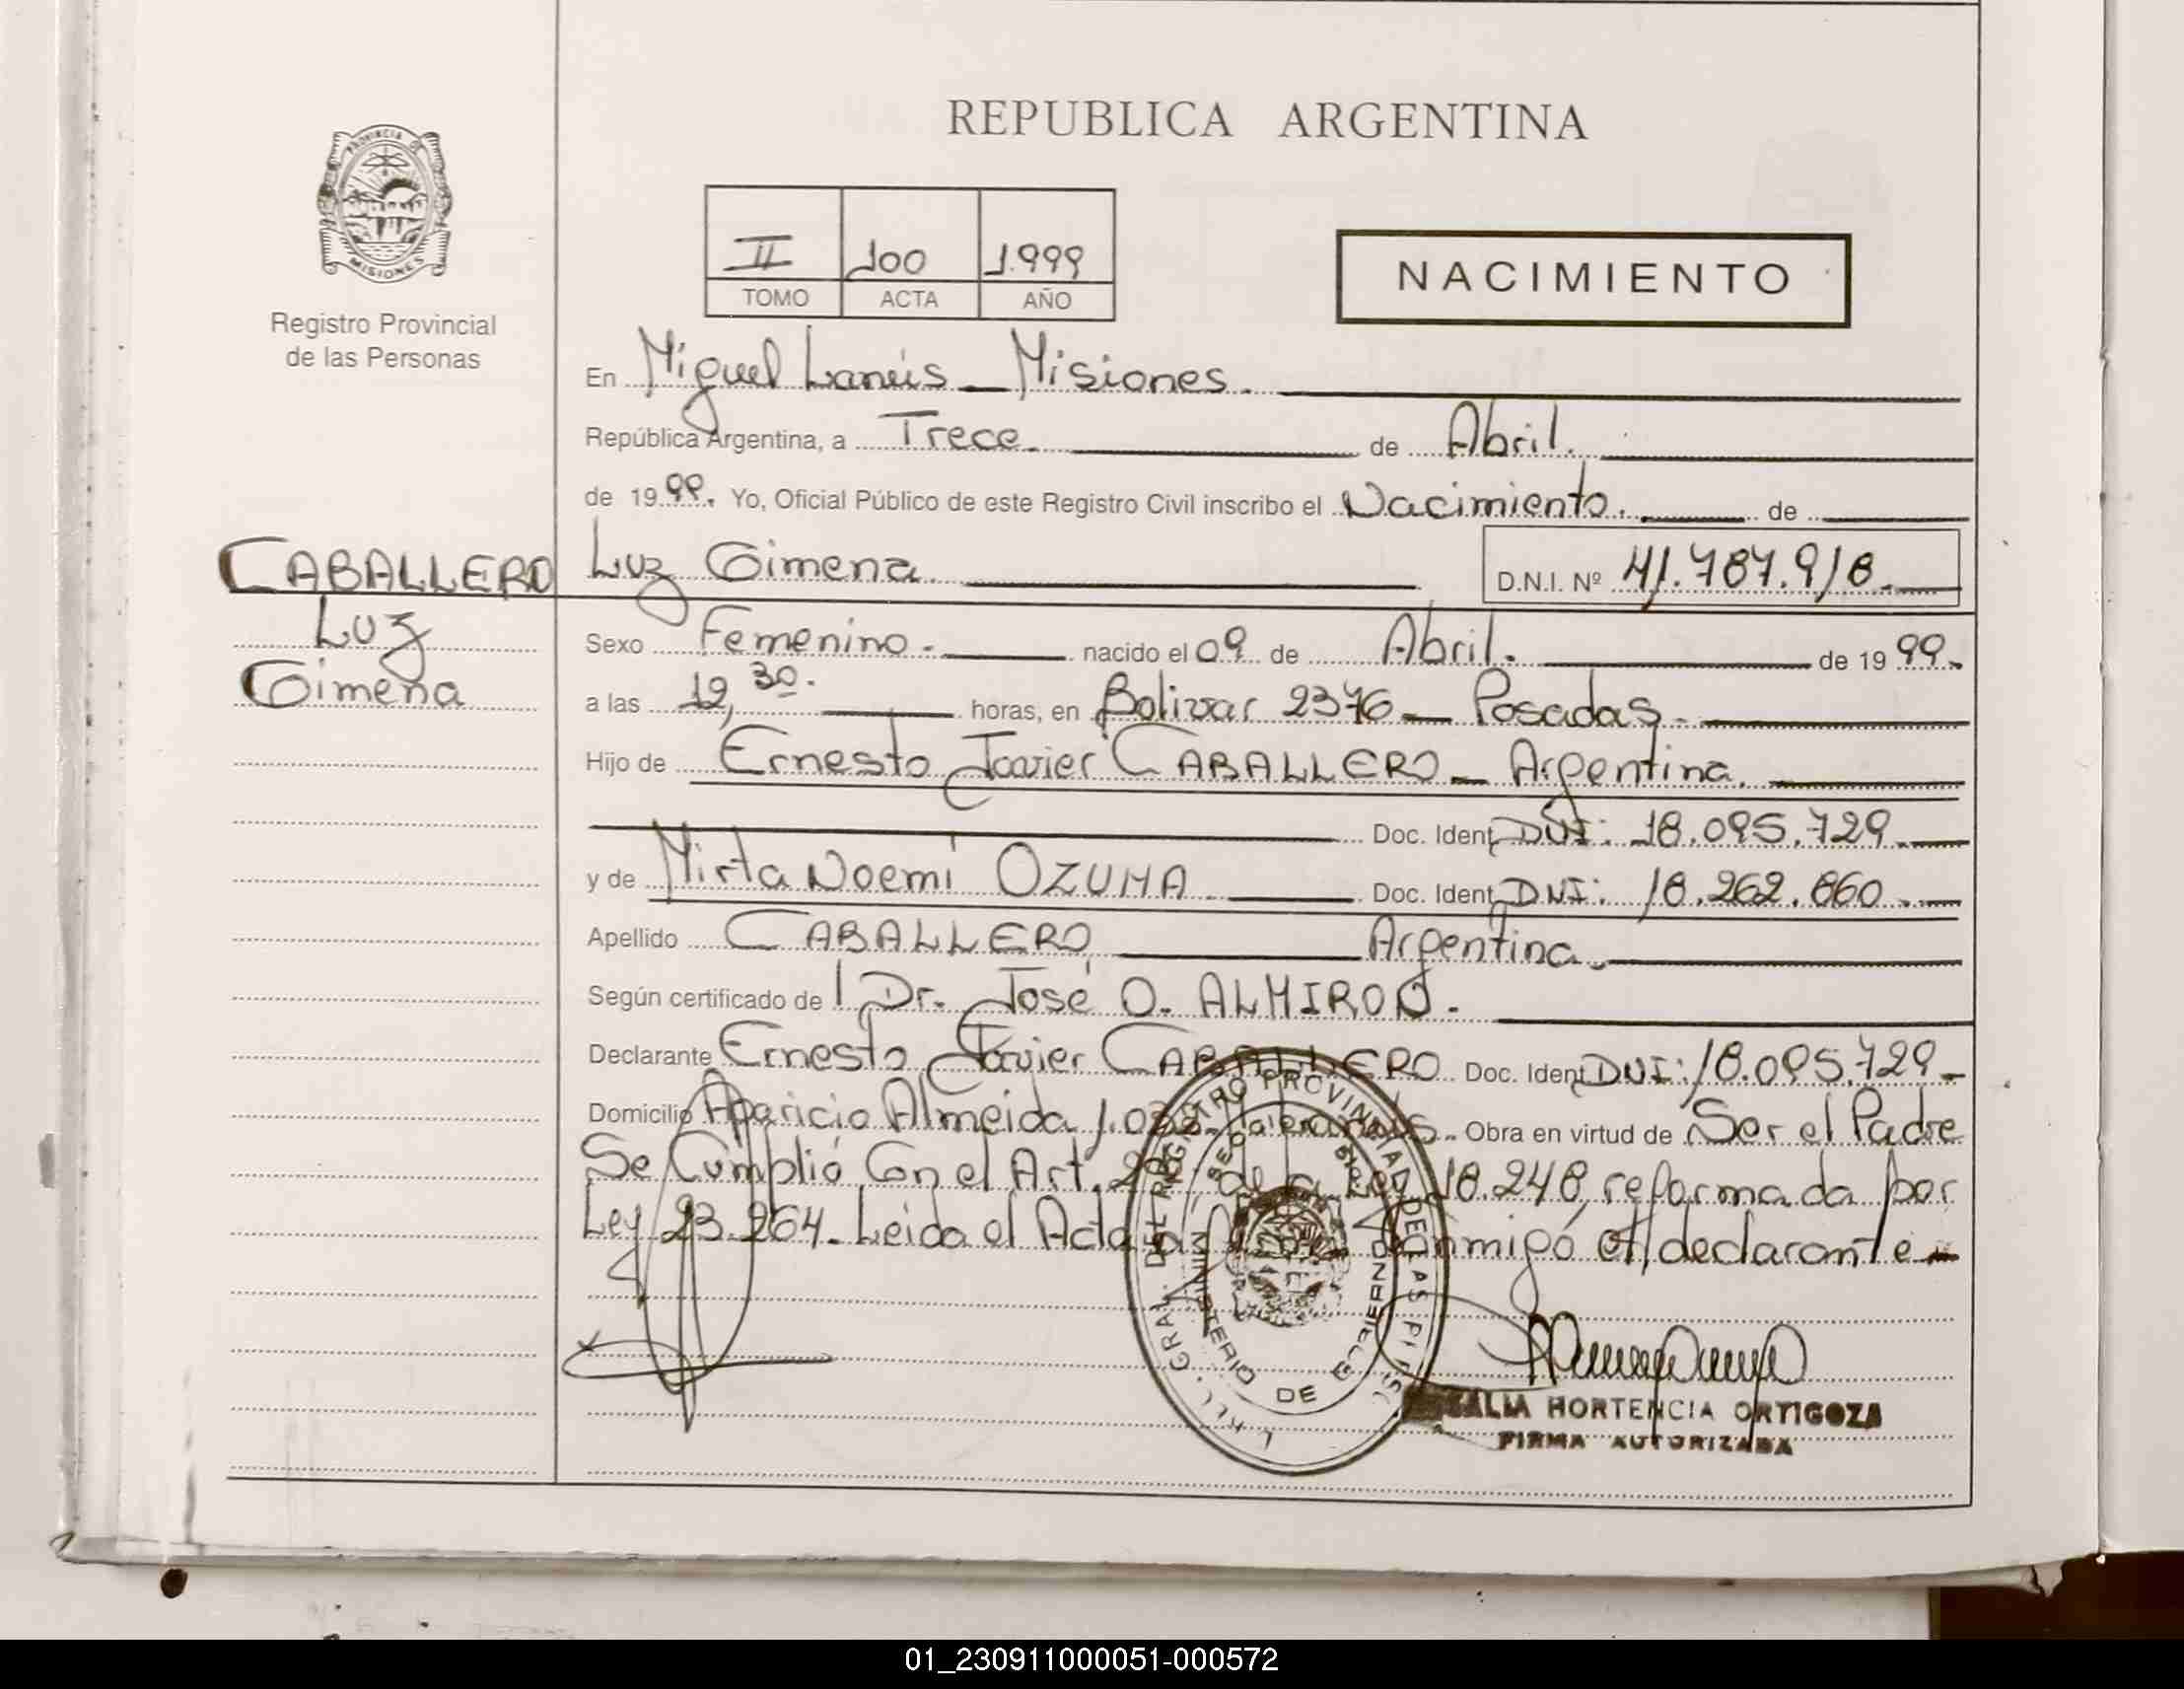 REPUBLICA ARGENTINA
PROVINCIA DE
MISIONES
Registro Provincial
de las Personas
II 100 1.999
TOMO ACTA AÑO
NACIMIENTO
En Miguel Lanús — Misiones.
República Argentina, a Trece. de Abril.
de 1999. Yo, Oficial Público de este Registro Civil inscribo el Nacimiento. de
CABALLERO Luz Gimena. D.N.I. Nº 41.787.918.
Luz
Gimena
Sexo Femenino. nacido el 09 de Abril. de 1999.
a las 12,30. horas, en Bolivar 2376 — Posadas.
Hijo de Ernesto Javier CABALLERO — Argentina.
Doc. Ident. DNI: 18.095.729.
y de Mirta Noemí OZUMA. Doc. Ident. DNI: 18.262.860.
Apellido CABALLERO Argentina.
Según certificado de l Dr. José O. ALMIRON.
Declarante Ernesto Javier CABALLERO Doc. Ident. DNI: 18.095.729
Domicilio Aparicio Almeida Obra en virtud de Ser el Padre
Se Cumplió Con el Art. de la Ley 18.248, reformada por
Ley 23.264. Leida el Acta declarante
REGISTRO PROVINCIAL DE LAS
MINISTERIO DE
HORTENCIA ORTIGOZA
FIRMA AUTORIZADA
01_230911000051-000572